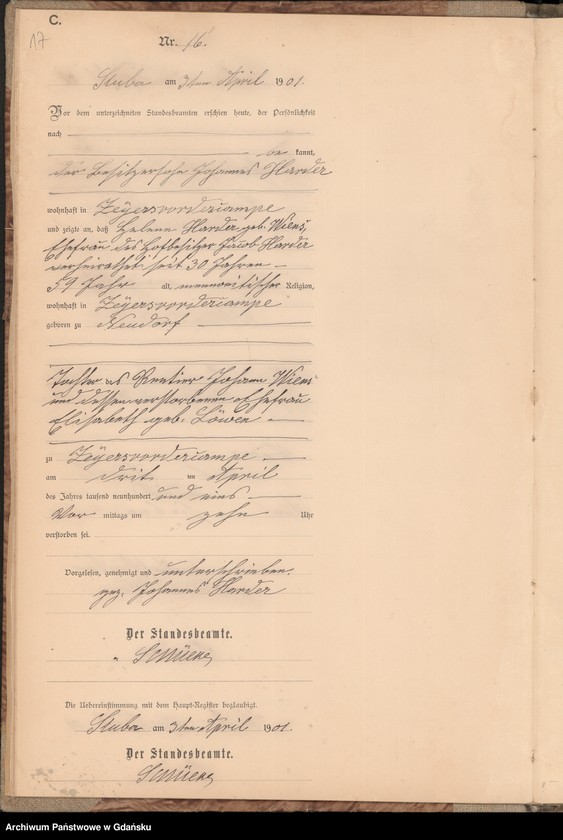 C.
17
Nr. 16.
Stuba am 3ten April 1901.
Vor dem unterzeichneten Standesbeamten erschien heute, der Persönlichkeit
nach
be kannt,
der Besitzersohn Johannes Harder
wohnhaft in Zeyersvordercampe
und zeigte an, daß Helene Harder geb. Wiens,
Ehefrau des Hofbesitzer Jacob Harder
verheirathet seit 30 Jahren
59 Jahr alt, mennonitischer Religion,
wohnhaft in Zeyersvordercampe
geboren zu Neudorf
Tochter des Rentier Johann Wiens
und dessen verstorbenen Ehefrau
Elisabeth geb. Löwen
zu Zeyersvordercampe
am drit ten April
des Jahres tausend neunhundert und eins
Vor mittags um zehn Uhr
verstorben sei.
Vorgelesen, genehmigt und unterschrieben.
gez. Johannes Harder
Der Standesbeamte.
Die Uebereinstimmung mit dem Haupt-Register beglaubigt.
Stuba am 3ten April 1901.
Der Standesbeamte.
Archiwum Państwowe w Gdańsku